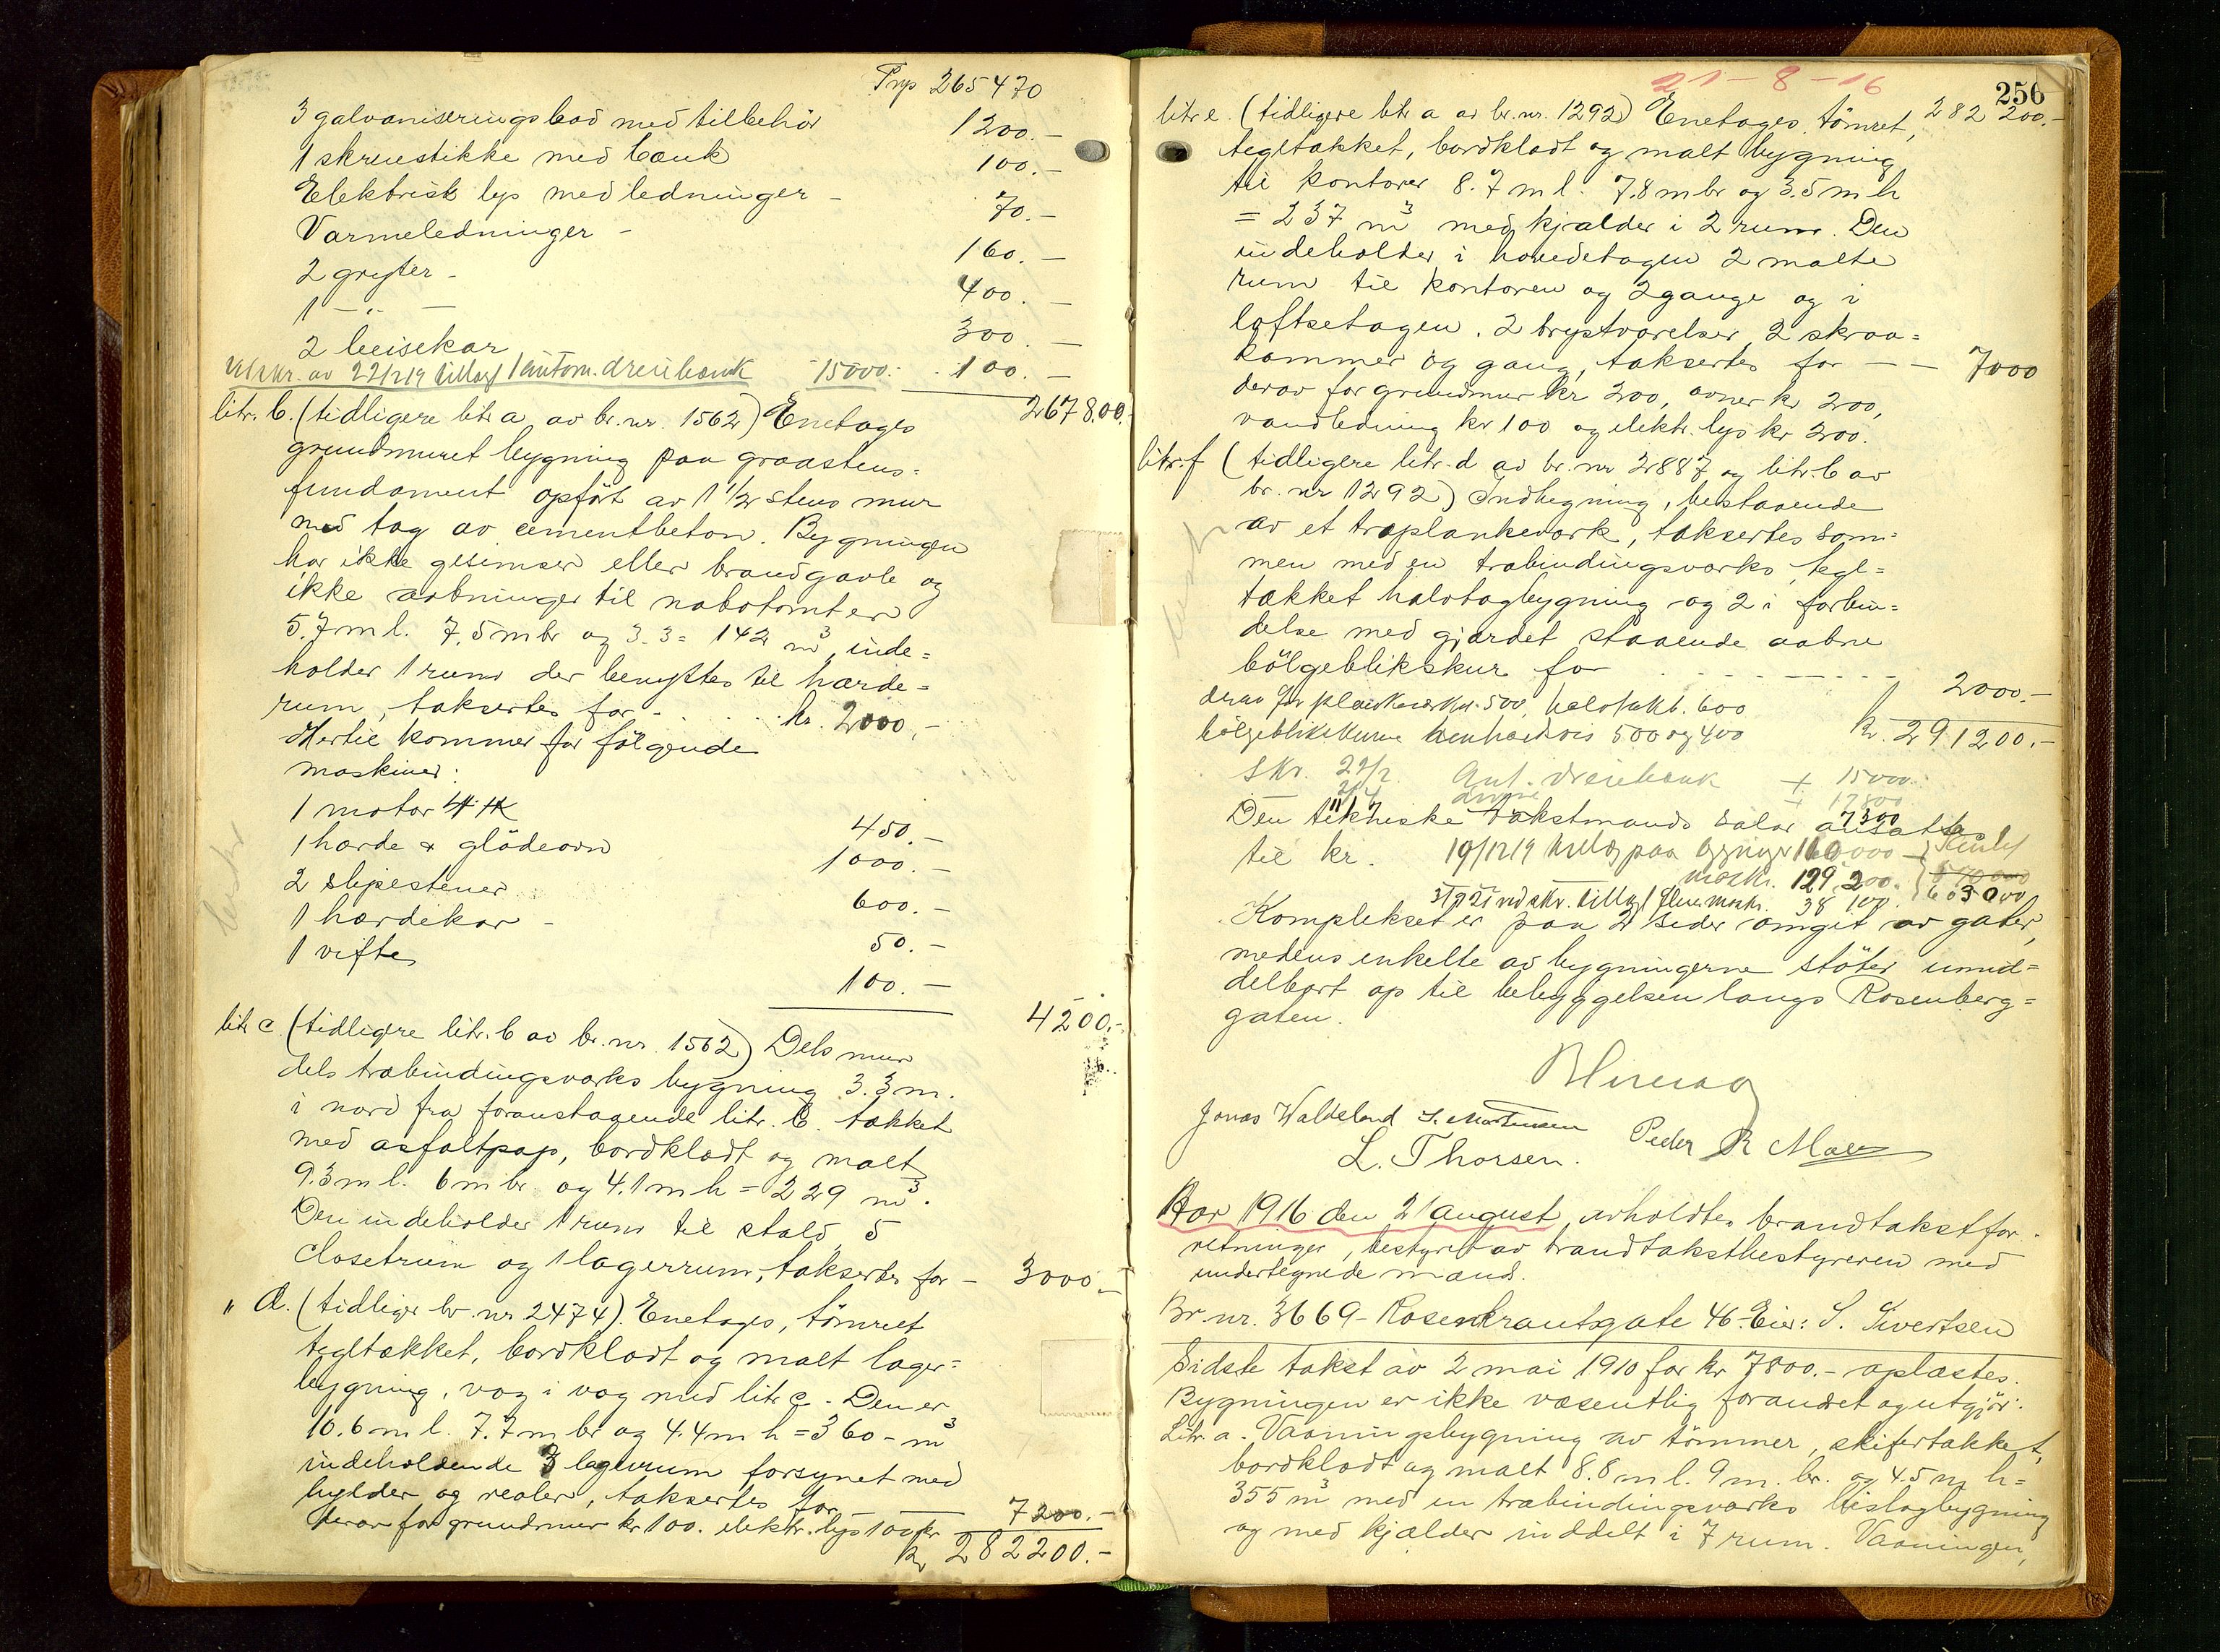 Trp 265470
3 galvaniseringsbad med tilbehör 1200.-
1 skruestikke med bænk 100.-
Elektrisk lys med ledninger - 70.-
Varmeledninger - 160.-
2 gryter - 400.-
1 -"- 300.-
2 beisekar 100.-
av 22/219 tillæg 1 autom. dreiebænk 15000.-
267800.-
litr. b. (tidligere litr a av br. nr. 1562) Enetages
grundmuret bygning paa graastens-
fundament opfört av 1 1/2 stens mur
med tag av cementbeton. Bygningen
har ikke gesimser eller brandgavle og
ikke aabninger til nabotomten
5.7 m l. 7.5 m br og 3.3 = 142 m3, inde=
holder 1 rum der benyttes til hærde=
rum, taksertes for - . . . kr. 2000.-
Hertil kommer for fölgende
maskiner:
1 motor 4 HK 450.-
1 hærde & glödeovn 1000.-
2 slipestener 600.-
1 hærdekar - 50.-
1 vifte 100.-
4200.-
litr c. (tidligere litr. b av br. nr. 1562) Dels mur
dels træbindingsværks bygning 3.3 m.
i nord fra foranstaaende litr. b. tækket
med asfaltpap, bordklædt og malt
9.3 m l. 6 m br. og 4.1 m h = 229 m3.
Den indeholder 1 rum til stald, 5
closetrum og 1 lagerrum, taksertes for - 3000.-
" d. (tidliger br. nr 2474). Enetages, tömret
tegltækket, bordklædt og malt lager=
bygning, væg i væg med litr c. Den er
10.6 m l. 7.7 m br og 4.4 m h = 360 - m3
indeholdende 3 lagerrum forsynet med
hylder og reoler, taksertes for - 7200.-
derav for grundmur kr 100. elektr. lys 100 kr
Kr 282200.-
21-8-16
256
litr e. (tidligere litr a av br. nr. 1292) Enetages tömret, 282 200.-
tegltækket, bordklædt og malt bygning
til kontorer 8.7 m l. 7.8 m br og 3.5 m h
= 237 m3 med kjælder i 2 rum. Den
indeholder i hovedetagen 2 malte
rum til kontorer og 2 gange og i
loftsetagen. 2 brystværelser, 2 skraa=
kammer og gang, taksertes for - - 7000
derav for grundmur kr 200, ovner kr 200,
vandledning kr 100 og elektr. lys kr 200.
litr. f (tidligere litr. d av br. nr 2887 og litr. b av
br. nr 1292) Indhegning, bestaaende
av et træplankeværk, taksertes som=
men med en træbindingsværks, tegl=
tækket halvtagbygning og 2 i forbin=
delse med gjærdet staaende aabne
bölgeblikskur for . . . . . 2000.-
derav for plankeværk kr. 500, halvtakb. 600
bölgeblikskurene henholdsvis 500 og 400 Kr. 291200.-
skr. 22/2 Aut. dreiebænk + 15000.-
21/4 diverse + 17800
Den tekniske takstmands salær ansattes 7300
til kr.
19/1219 tillæg paa bygninger 160000 -
mask. 129 200.
31/921 indskr. tillæg flere mask. 38 100. 603000
Komplekset er paa 2 sider omgit av gater,
medens enkelte av bygningerne stöter umid=
delbart op til bebyggelsen langs Rosenberg=
gaten.
Jonas Waldeland S. Mortensen
L. Thorsen. Peder R Moe
Aar 1916 den 21 august avholdtes brandtakstfor-
retninger, bestyret av brandtakstbestyreren med
undertegnede mænd.
Br. nr. 3669 - Rosenkrantzgate 46 - Eier: S. Sivertsen
Sidste takst av 2 mai 1910 for kr 7800.- oplæstes.
Bygningen er ikke væsentlig forandret og utgjör:
Litr. a. Vaaningsbygning av tömmer, skifertækket,
bordklædt og malt 8.8 m l. 9 m. br. og 4.5 m h =
355 m3 med en træbindingsværks bislagbygning
og med kjælder inddelt i 7 rum. Vaaningen,